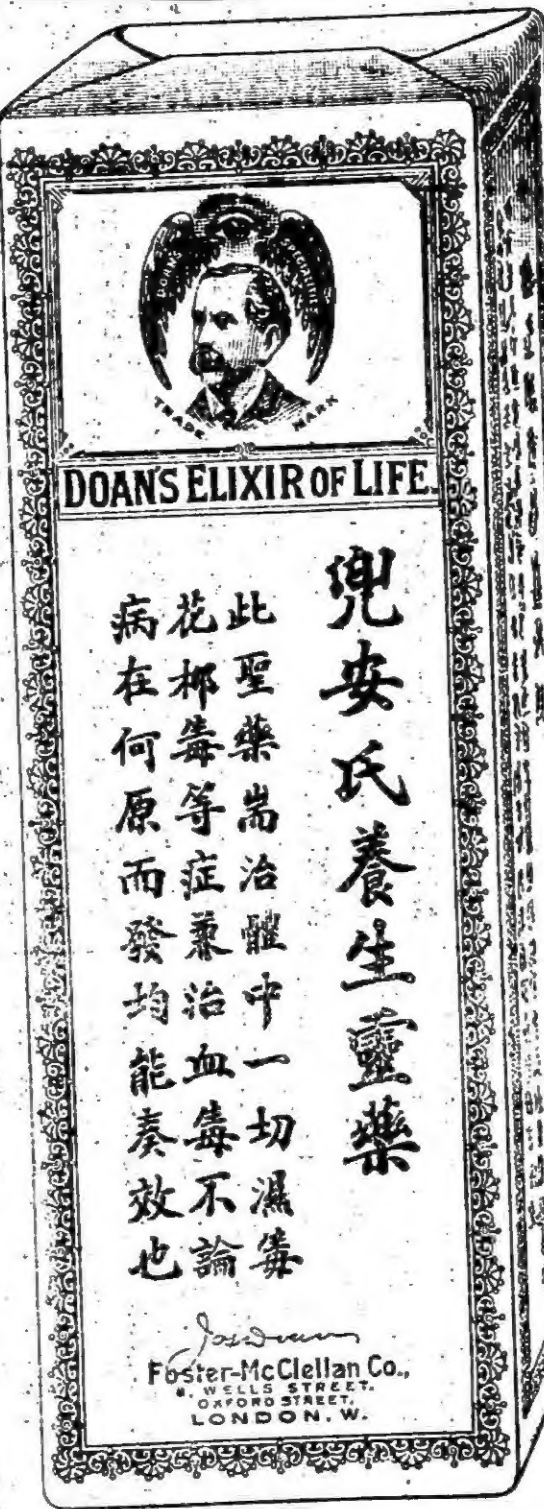 DOAN'S SPECIALITIES
TRADE MARK
DOAN'S ELIXIR OF LIFE.
兜安氏養生靈藥
此聖藥耑治體中一切濕毒
花柳毒等症兼治血毒不論
病在何原而發均能奏效也
Jas Doan
Foster-McClellan Co.,
8. WELLS STREET.
OXFORD STREET,
LONDON. W.